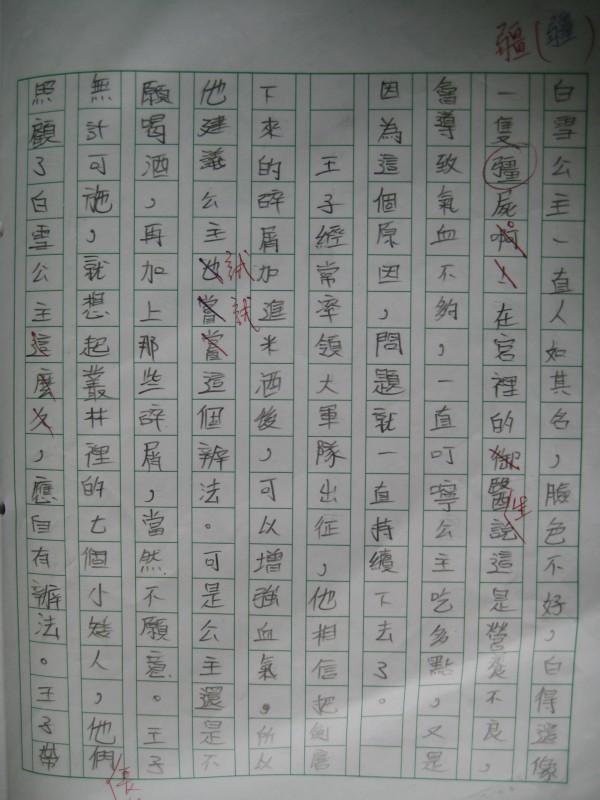 疆(疆)
白雪公主一直人如其名，臉色不好，白得還像
一隻疆屍啊！在宮裡的御醫說這是營養不良，
生
會導致氣血不夠，一直叮嚀公主吃多點，又是
因為這個原因，問題就一直持續下去了。
王子經常率領大軍隊出征，他相信把劍磨
下來的碎屑加進米酒後，可以增強血氣。所以
試試
他建議公主也嘗嘗這個辦法。可是公主還是不
願喝酒，再加上那些碎屑，當然不願意。王子
無計可施，就想起叢林裡的七個小矮人，他們
長
照顧了白雪公主這麼久，應自有辦法。王子帶